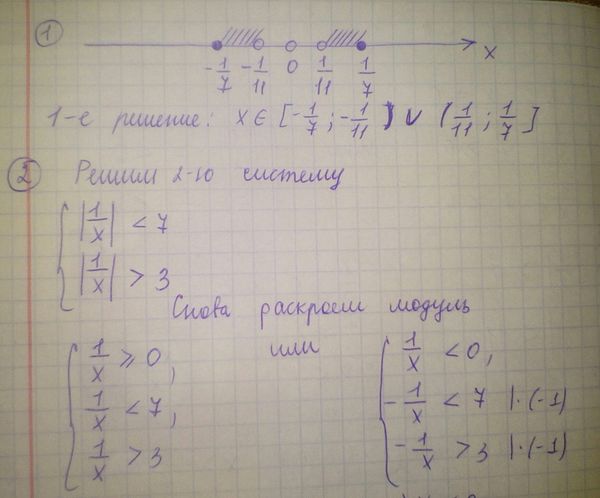 1
x
-1/7 -1/11 0 1/11 1/7
1-е решение: x ∈ [-1/7; -1/11) ∪ (1/11; 1/7]
2 Решим 2-ю систему
{ |1/x| < 7
|1/x| > 3
Снова раскроем модуль
или
{ 1/x ≥ 0,
1/x < 7,
1/x > 3
{ 1/x < 0,
-1/x < 7 |·(-1)
-1/x > 3 |·(-1)